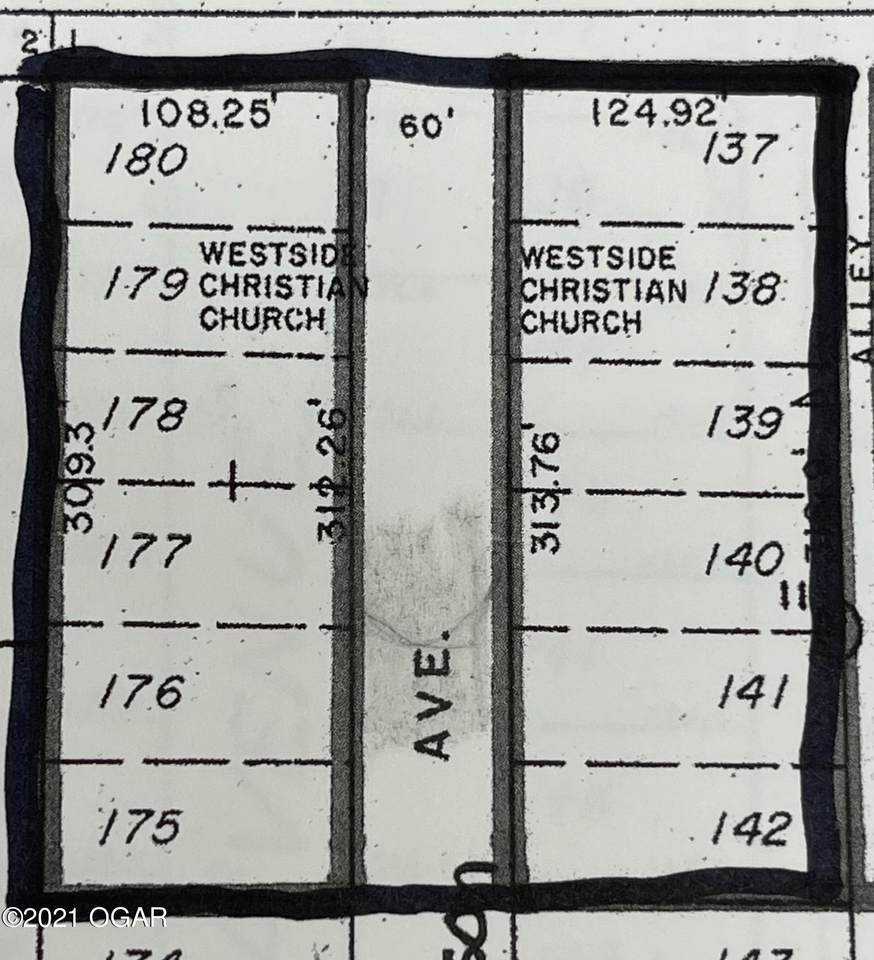 2 1
108.25'
60'
124.92'
180
137
WESTSIDE
CHRISTIAN
CHURCH
179
WESTSIDE
CHRISTIAN
CHURCH
138
ALLEY
178
139
309.3
313.76'
177
140
AVE.
176
141
175
142
©2021 OGAR